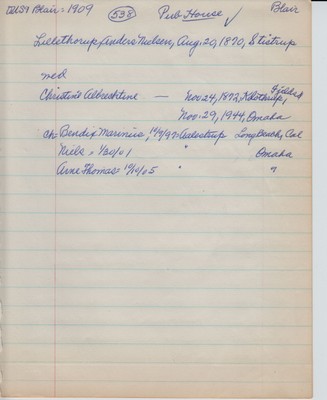 TUSA Blair: 1909 538 Pub House ✓ Blair
Lillethorup, Anders Nielsen, Aug. 20, 1870, Stistrup
med
Christine Albrechtine — Nov 24, 1872, Klotrup,
Nov. 29, 1944, Omaha
ch. Bendix Marinius, Aalestrup Long Beach, Cal
Niels, 1/30/01 " Omaha
Arne Thomas: 10/10/05 " "